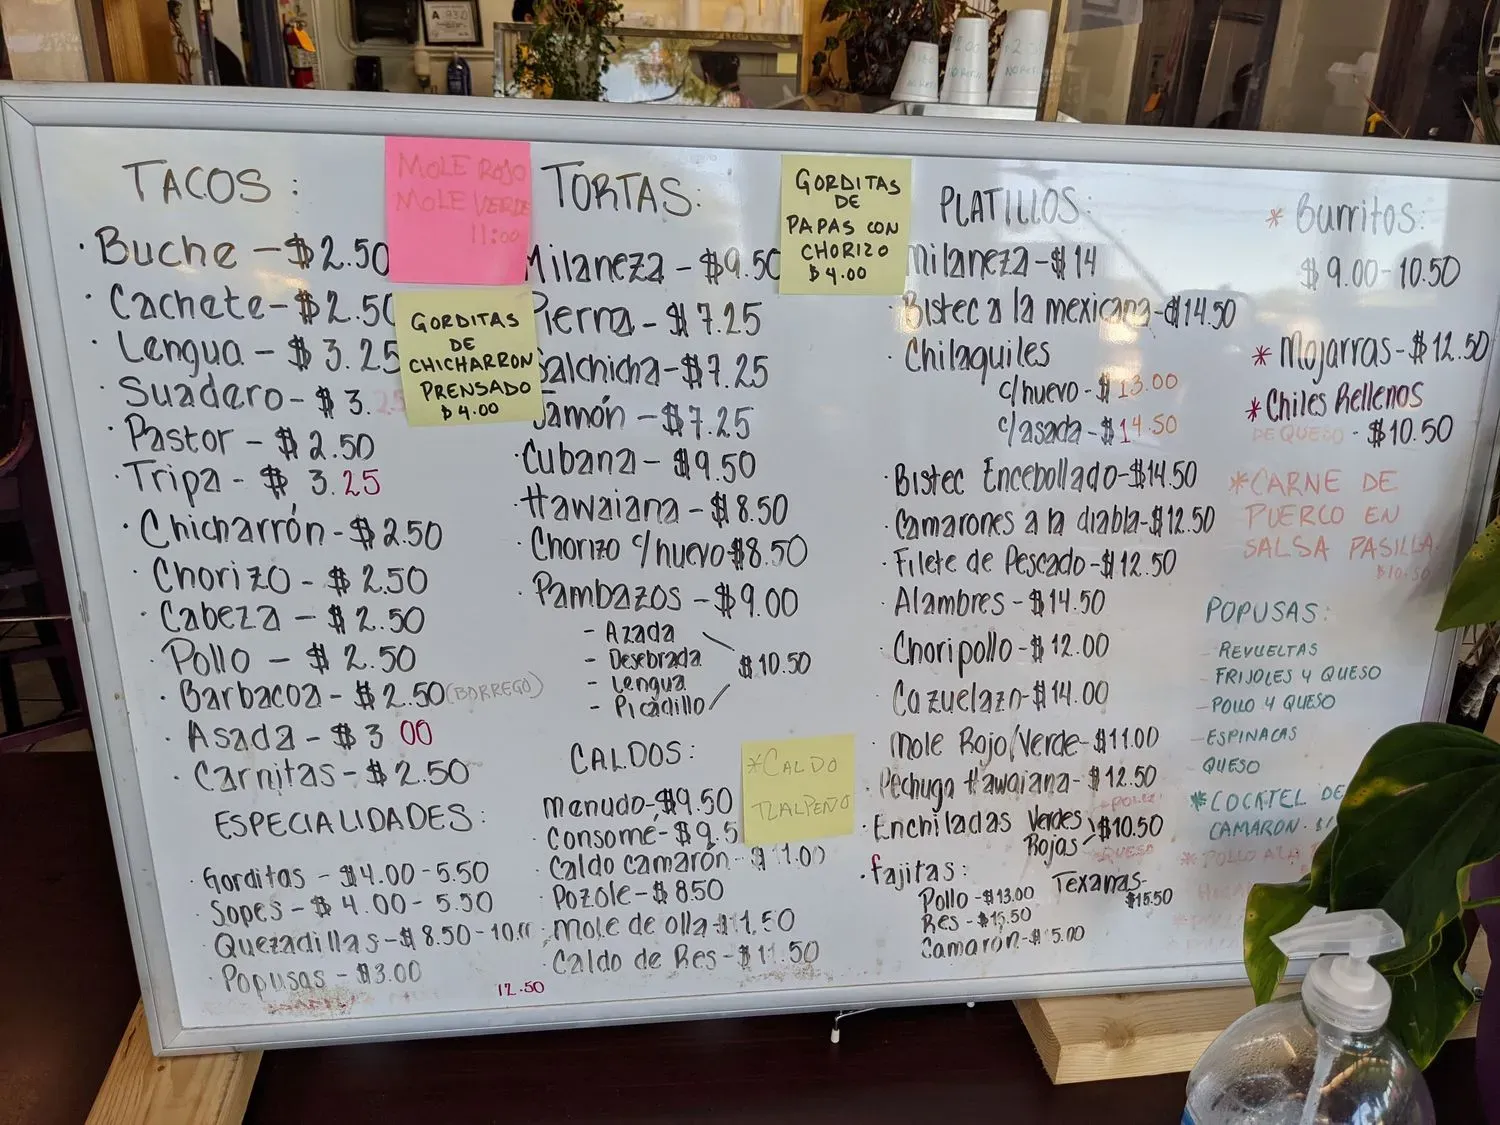 TACOS:
· Buche - $2.50
· Cachete - $2.50
· Lengua - $3.25
· Suadero - $3.25
· Pastor - $2.50
· Tripa - $3.25
· Chicharrón - $2.50
· Chorizo - $2.50
· Cabeza - $2.50
· Pollo - $2.50
· Barbacoa - $2.50 (BORREGO)
· Asada - $3 00
· Carnitas - $2.50
ESPECIALIDADES:
· Gorditas - $4.00 - 5.50
· Sopes - $4.00 - 5.50
· Quezadillas - $8.50 -
· Popusas - $3.00
12.50
MOLE ROJO
MOLE VERDE
11:00
GORDITAS
DE
CHICHARRON
PRENSADO
$4.00
TORTAS:
Milaneza - $9.50
Pierna - $7.25
Salchicha - $7.25
Jamón - $7.25
· Cubana - $9.50
· Hawaiana - $8.50
· Chorizo c/huevo $8.50
· Pambazos - $9.00
- Azada
- Desebrada
- Lengua
- Picadillo
$10.50
CALDOS:
menudo - $9.50
· Consome - $9.5
· Caldo camarón - $11.00
· Pozole - $8.50
· Mole de olla - $11.50
· Caldo de Res - $11.50
*CALDO
TLALPEÑO
GORDITAS
DE
PAPAS CON
CHORIZO
$4.00
PLATILLOS:
Milaneza - $14
· Bistec a la mexicana - $14.50
· Chilaquiles
c/huevo - $13.00
c/asada - $14.50
· Bistec Encebollado - $14.50
· Camarones a la diabla - $12.50
· Filete de Pescado - $12.50
· Alambres - $14.50
· Choripollo - $12.00
· Cazuelazo - $14.00
· Mole Rojo/Verde - $11.00
· Pechuga Hawaiana - $12.50
· Enchiladas Verdes
Rojas
$10.50
QUESO
· fajitas:
Pollo - $13.00
Res - $15.50
Camarón - $15.00
Texanas -
$15.50
* Burritos:
$9.00 - 10.50
* Mojarras - $12.50
* Chiles Rellenos
DE QUESO - $10.50
*CARNE DE
PUERCO EN
SALSA PASILLA
$10.50
POPUSAS:
- REVUELTAS
- FRIJOLES Y QUESO
- POLLO Y QUESO
- ESPINACAS
QUESO
*COCKTEL DE
CAMARON.
* POLLO A LA